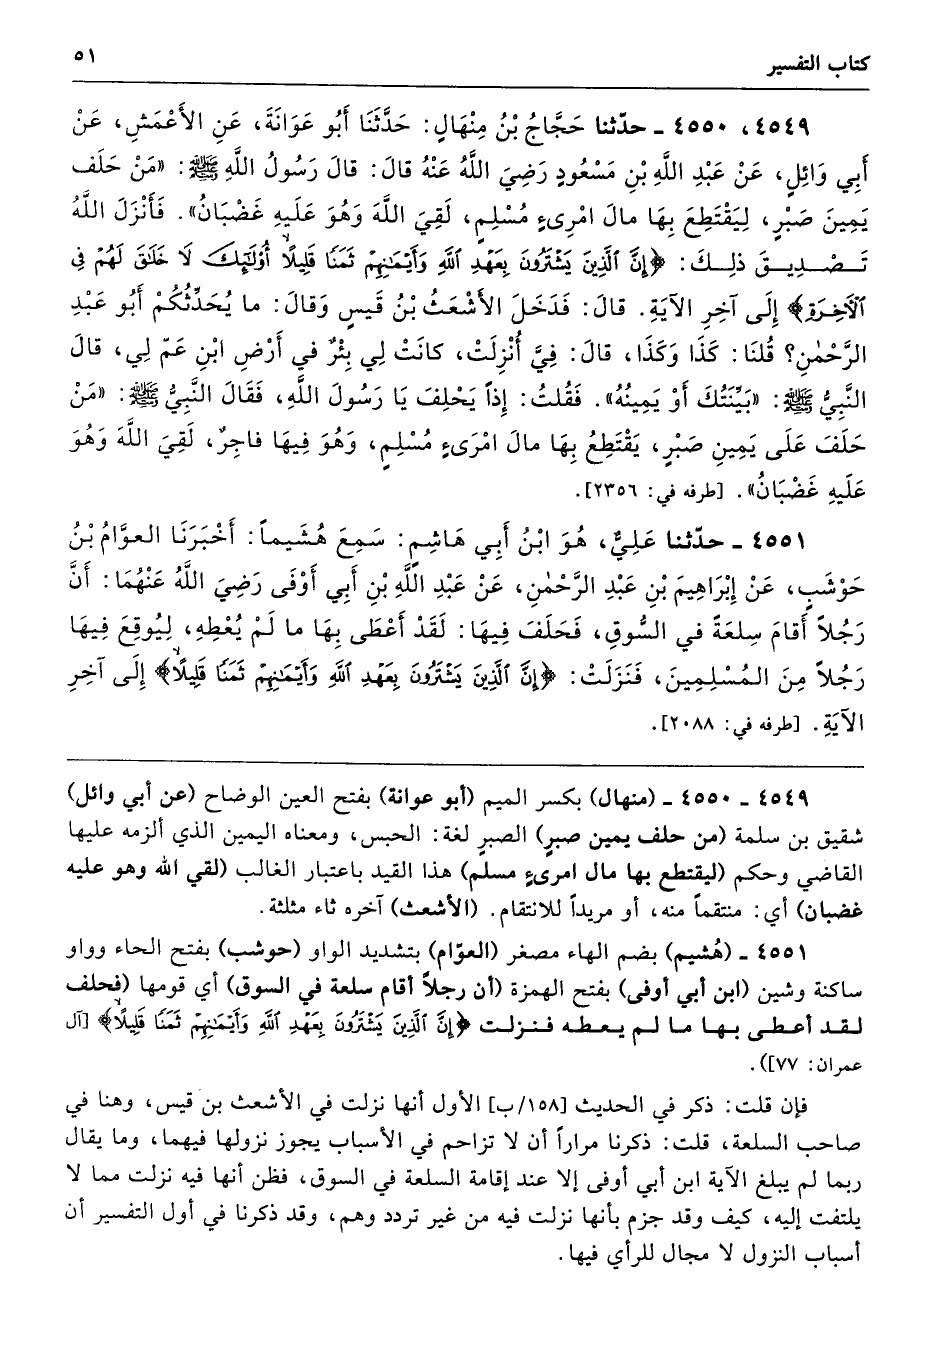 كتاب التفسير
٥١
٤٥٤٩، ٤٥٥٠ ـ حدّثنا حَجَّاجُ بْنُ مِنْهَالٍ: حَدَّثَنَا أَبُو عَوَانَةَ، عَنِ الأَعْمَشِ، عَنْ
أَبِي وَائِلٍ، عَنْ عَبْدِ اللَّهِ بْنِ مَسْعُودٍ رَضِيَ اللَّهُ عَنْهُ قالَ: قالَ رَسُولُ اللَّهِ ﷺ: «مَنْ حَلَف
يَمِينَ صَبْرٍ، لِيَقْتَطِعَ بِهَا مالَ امْرِىءٍ مُسْلِمٍ، لَقِيَ اللَّهَ وَهُوَ عَلَيهِ غَضْبَانُ». فَأَنْزَلَ اللَّهُ
تَـصْـدِيـقَ ذلِـكَ: ﴿إِنَّ ٱلَّذِينَ يَشْتَرُونَ بِعَهْدِ ٱللَّهِ وَأَيْمَٰنِهِمْ ثَمَنًا قَلِيلًا أُوْلَٰٓئِكَ لَا خَلَٰقَ لَهُمْ فِى
ٱلْأَخِرَةِ﴾ إِلَى آخِرِ الآيَةِ. قالَ: فَدَخَلَ الأَشْعَثُ بْنُ قَيسٍ وَقالَ: ما يُحَدِّثُكُمْ أَبُو عَبْدِ
الرَّحْمٰنِ؟ قُلنَا: كَذَا وَكَذَا، قالَ: فِيَّ أُنْزِلَتْ، كانَتْ لِي بِئْرٌ في أَرْضِ ابْنِ عَمّ لِي، قالَ
النَّبِيُّ ﷺ: «بَيِّنَتُكَ أَوْ يَمِينُهُ». فَقُلتُ: إِذاً يَحْلِفَ يَا رَسُولَ اللَّهِ، فَقَالَ النَّبِيُّ ﷺ: «مَنْ
حَلَفَ عَلَى يَمِينِ صَبْرٍ، يَقْتَطِعُ بِهَا مالَ امْرَىءٍ مُسْلِمٍ، وَهُوَ فِيهَا فاجِرٌ، لَقِيَ اللَّهَ وَهُوَ
عَلَيهِ غَضْبَانُ». [طرفه في: ٢٣٥٦].
٤٥٥١ ـ حدّثنا عَلِيٌّ، هُوَ ابْنُ أَبِي هَاشِمٍ: سَمِعَ هُشَيماً: أَخْبَرَنَا العوَّامُ بْنُ
حَوْشَبٍ، عَنْ إِبْرَاهِيمَ بْنِ عَبْدِ الرَّحْمٰنِ، عَنْ عَبْدِ اللَّهِ بْنِ أَبِي أَوْفَى رَضِيَ اللَّهُ عَنْهُمَا: أَنَّ
رَجُلاً أَقامَ سِلعَةً في السُّوقِ، فَحَلَفَ فِيهَا: لَقَدْ أَعْطَى بِهَا ما لَمْ يُعْطِهِ، لِيُوقِعَ فِيهَا
رَجُلاً مِنَ المُسْلِمِينَ، فَنَزَلَتْ: ﴿إِنَّ ٱلَّذِينَ يَشْتَرُونَ بِعَهْدِ ٱللَّهِ وَأَيْمَٰنِهِمْ ثَمَنًا قَلِيلًا﴾ إِلَى آخِرِ
الآيَةِ. [طرفه في: ٢٠٨٨].
٤٥٤٩ ـ ٤٥٥٠ ـ (منهال) بكسر الميم (أبو عوانة) بفتح العين الوضاح (عن أبي وائل)
شقيق بن سلمة (من حلف يمين صبرٍ) الصبر لغة: الحبس، ومعناه اليمين الذي ألزمه عليها
القاضي وحكم (ليقتطع بها مال امرىءٍ مسلم) هذا القيد باعتبار الغالب (لقي الله وهو عليه
غضبان) أي: منتقماً منه، أو مريداً للانتقام. (الأشعث) آخره ثاء مثلثة.
٤٥٥١ ـ (هُشيم) بضم الهاء مصغر (العوّام) بتشديد الواو (حوشب) بفتح الحاء وواو
ساكنة وشين (ابن أبي أوفى) بفتح الهمزة (أن رجلاً أقام سلعة في السوق) أي قومها (فحلف
لـقـد أعـطـى بـهـا مـا لـم يـعـطـه فـنـزلـت ﴿إِنَّ ٱلَّذِينَ يَشْتَرُونَ بِعَهْدِ ٱللَّهِ وَأَيْمَٰنِهِمْ ثَمَنًا قَلِيلًا﴾ [آل
عمران: ٧٧]).
فإن قلت: ذكر في الحديث [١٥٨/ب] الأول أنها نزلت في الأشعث بن قيس، وهنا في
صاحب السلعة، قلت: ذكرنا مراراً أن لا تزاحم في الأسباب يجوز نزولها فيهما، وما يقال
ربما لم يبلغ الآية ابن أبي أوفى إلا عند إقامة السلعة في السوق، فظن أنها فيه نزلت مما لا
يلتفت إليه، كيف وقد جزم بأنها نزلت فيه من غير تردد وهم، وقد ذكرنا في أول التفسير أن
أسباب النزول لا مجال للرأي فيها.